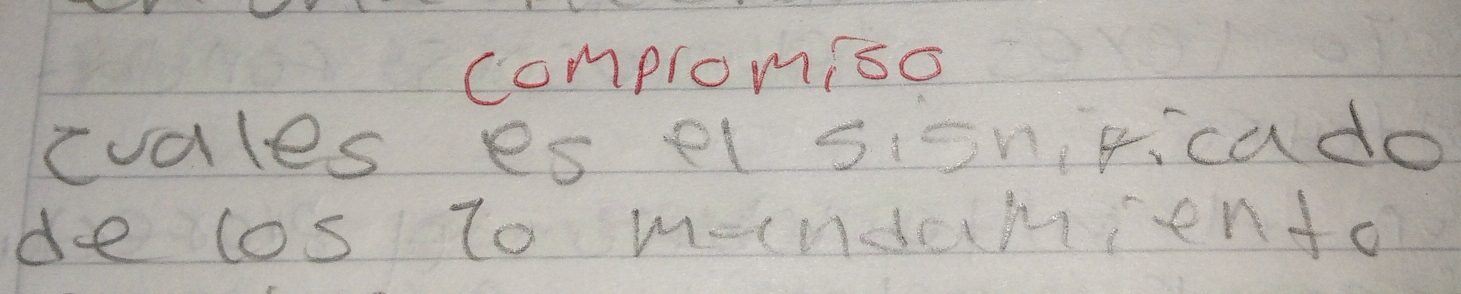 compromiso
cuales es el significado
de los 10 mandamiento